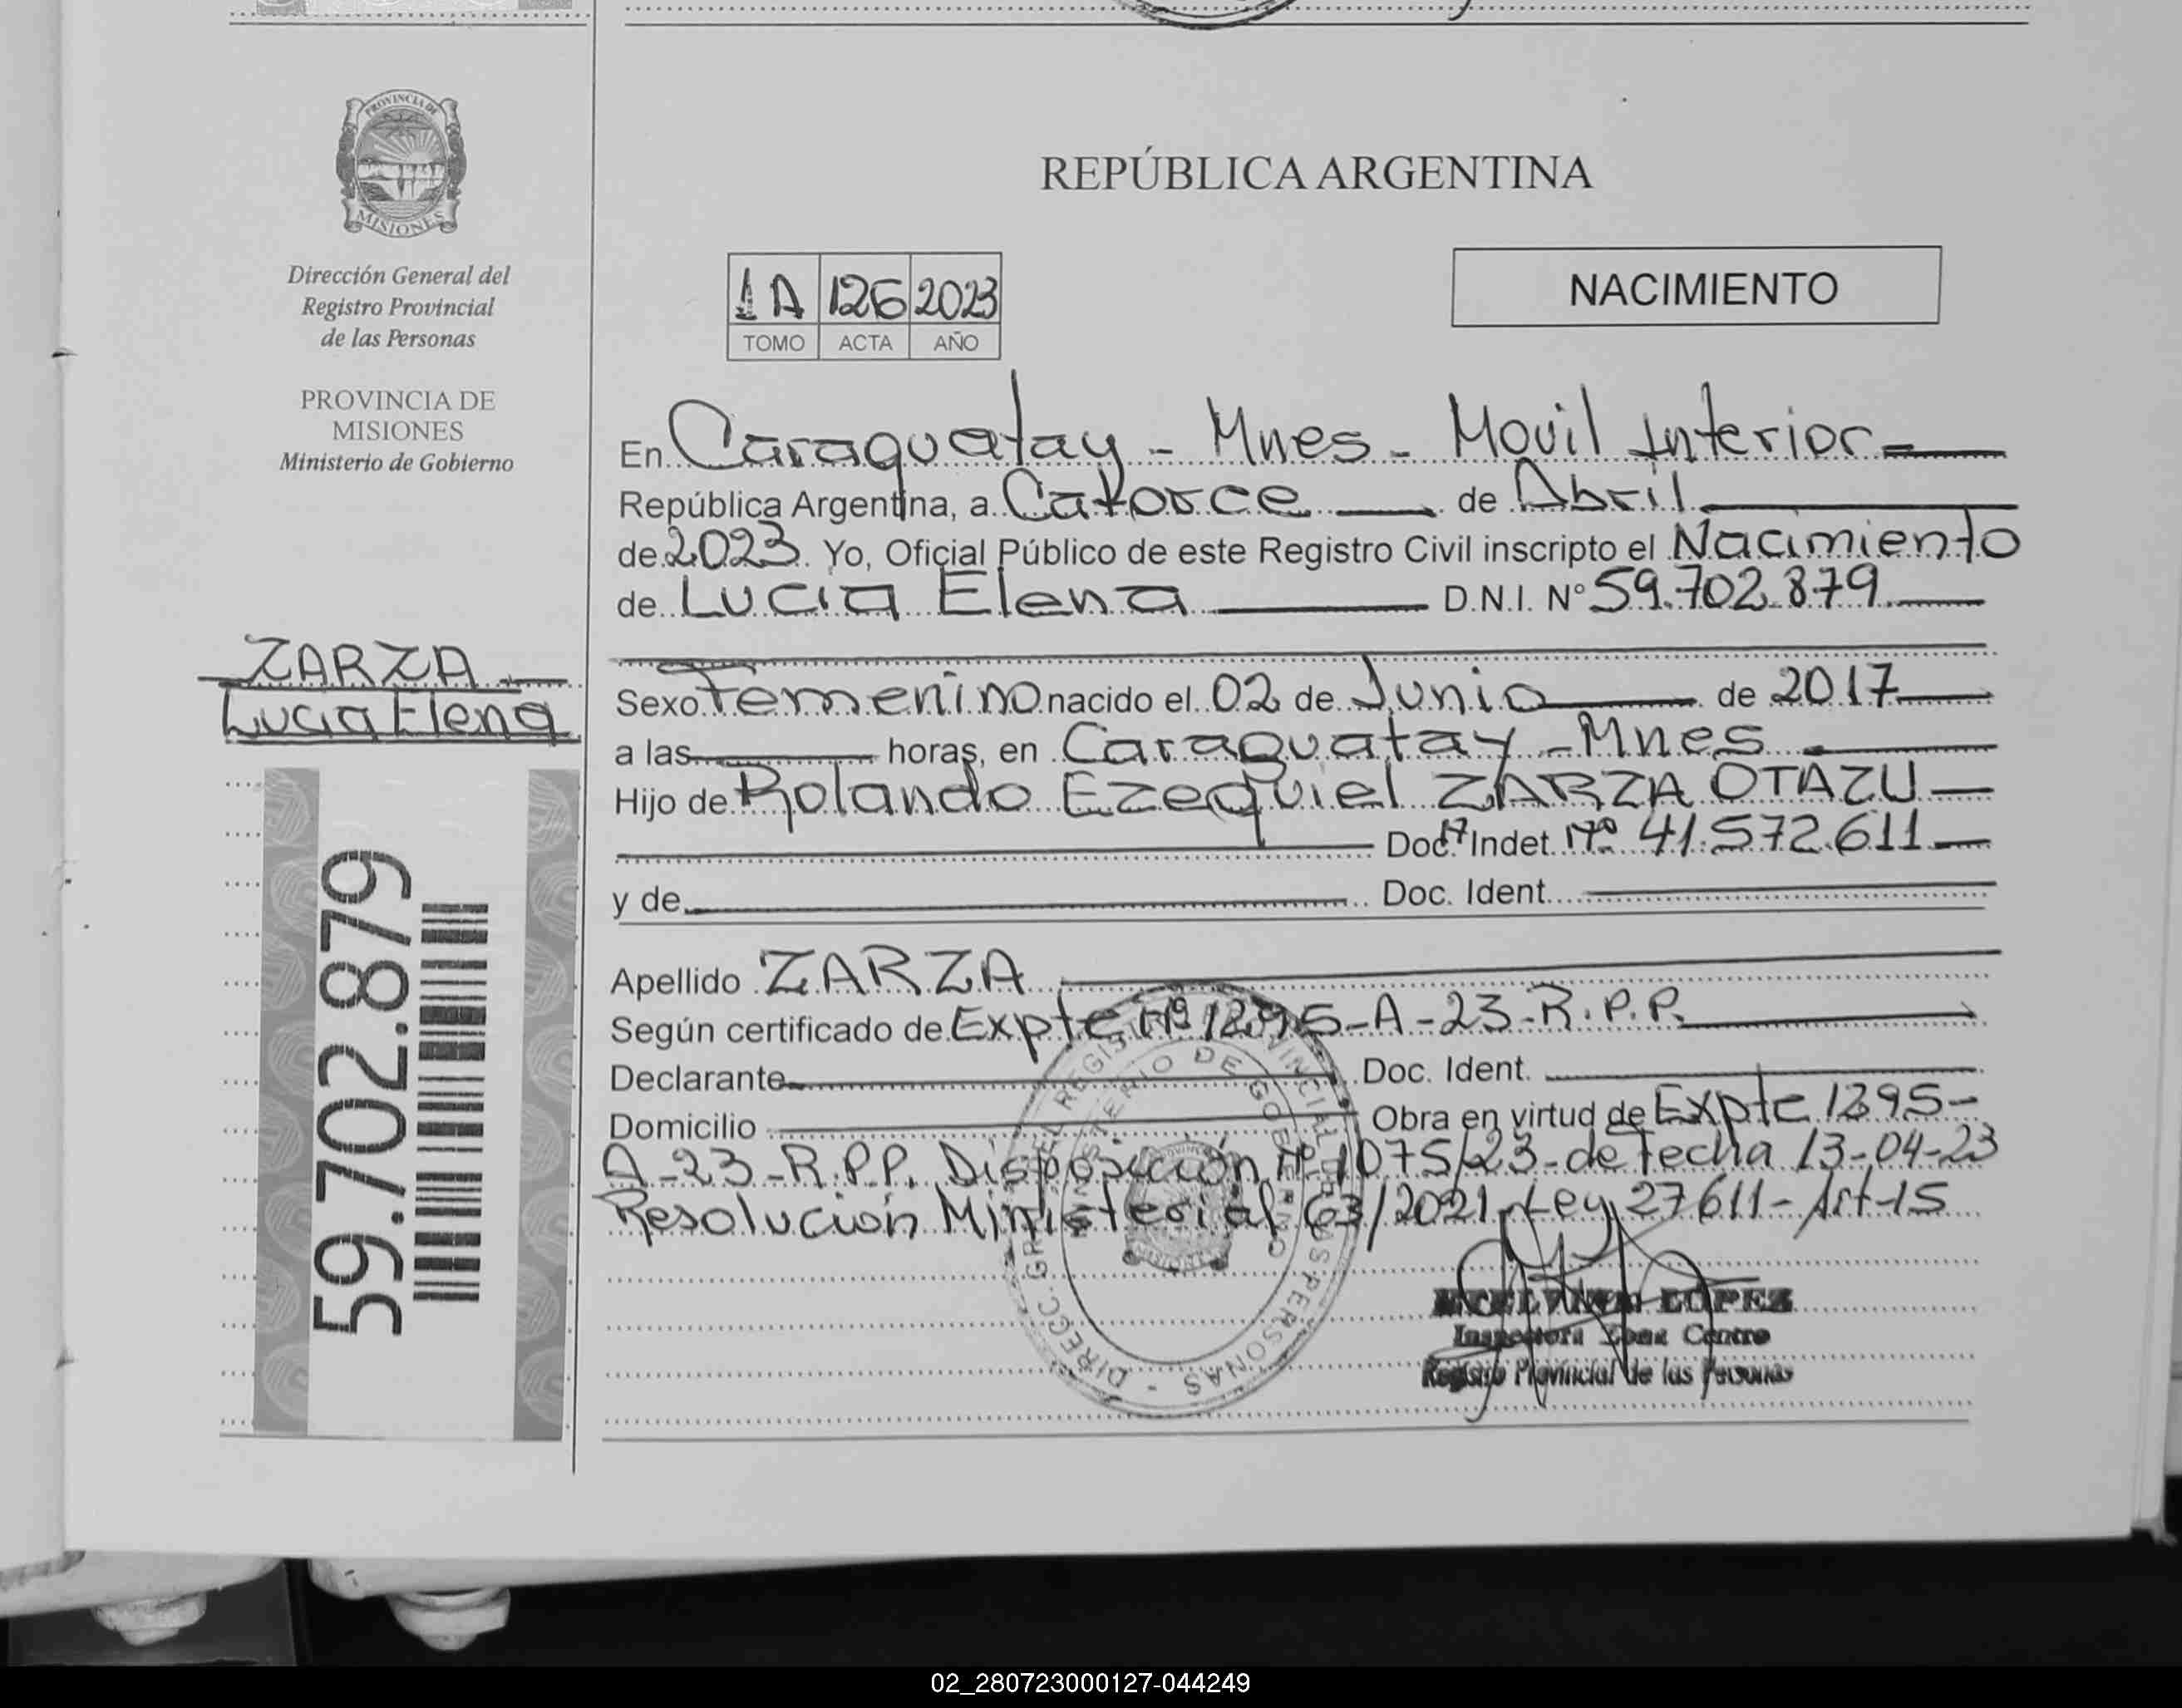 PROVINCIA DE
MISIONES
Dirección General del
Registro Provincial
de las Personas
PROVINCIA DE
MISIONES
Ministerio de Gobierno
ZARZA
Lucia Elena
59.702.879
REPÚBLICA ARGENTINA
1A 126 2023
TOMO ACTA AÑO
NACIMIENTO
En Caraguatay - Mnes - Movil Interior
República Argentina, a Catorce de Abril
de 2023 Yo, Oficial Público de este Registro Civil inscripto el Nacimiento
de Lucia Elena D.N.I. N° 59.702.879
Sexo Femenino nacido el 02 de Junio de 2017
a las horas, en Caraguatay - Mnes
Hijo de Rolando Ezequiel ZARZA OTAZU
Doc. Indet. Nº 41.572.611
y de Doc. Ident.
Apellido ZARZA
Según certificado de Expte Nº 1295-A-23-R.P.P.
Declarante Doc. Ident.
Domicilio Obra en virtud de Expte 1295-
A-23-R.P.P. Disposición Nº 1075/23-de Fecha 13-04-23
Resolución Ministerial 63/2021-Ley 27611-Art-15
DIRECC. GRAL. DEL REGISTRO PROVINCIAL DE LAS PERSONAS -
MINISTERIO DE GOBIERNO
LOPEZ
Inspectora Zona Centro
Registro Provincial de las Personas
02_280723000127-044249